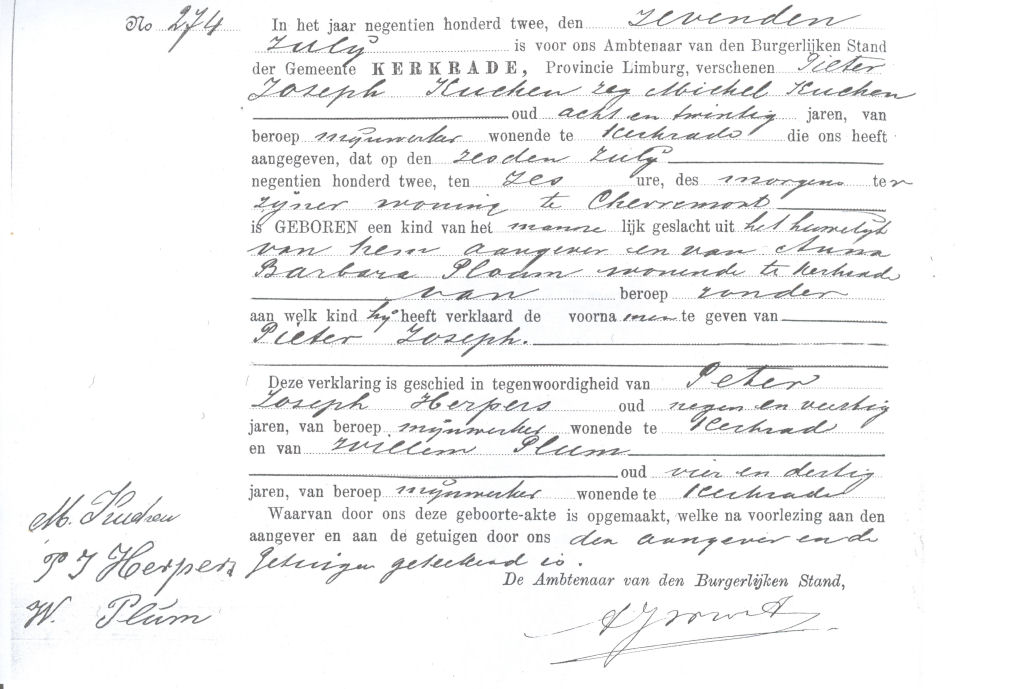 No 274 In het jaar negentien honderd twee, den zevenden
July is voor ons Ambtenaar van den Burgerlijken Stand
der Gemeente KERKRADE, Provincie Limburg, verschenen Pieter
Joseph Kuchen zeg Michel Kuchen
oud acht en twintig jaren, van
beroep mijnwerker wonende te Kerkrade die ons heeft
aangegeven, dat op den zesden July
negentien honderd twee, ten zes ure, des morgens ter
zijner woning te Chevremont
is GEBOREN een kind van het manne lijk geslacht uit het huwelijk
van hem aangever en van Anna
Barbara Ploum wonende te Kerkrade
van beroep zonder
aan welk kind hij heeft verklaard de voorna men te geven van
Pieter Joseph.
Deze verklaring is geschied in tegenwoordigheid van Peter
Joseph Herpers oud negen en veertig
jaren, van beroep mijnwerker wonende te Kerkrade
en van Willem Plum
oud vier en dertig
jaren, van beroep mijnwerker wonende te Kerkrade
Waarvan door ons deze geboorte-akte is opgemaakt, welke na voorlezing aan den
aangever en aan de getuigen door ons den aangever en de
getuigen geteekend is.
De Ambtenaar van den Burgerlijken Stand,
M. Kuchen
P J Herpers
W. Plum